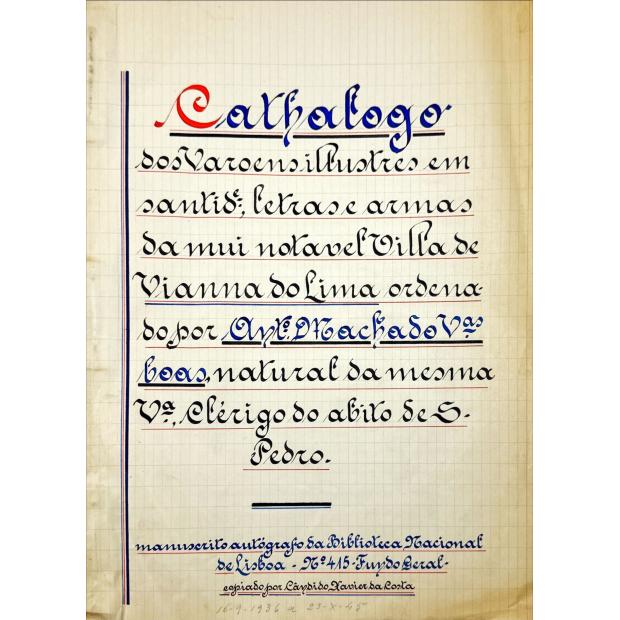 Cathalogo
dos Varoens illustres em
santid.e, letras e armas
da mui notavel Villa de
Vianna do Lima ordena-
do por Ant.º Machado V.as
boas, natural da mesma
V.ª, Clérigo do abito de S.
Pedro.
manuscrito autógrafo da Biblioteca Nacional
de Lisboa - Nº 415 - Fundo Geral -
copiado por Cândido Xavier da Costa
16-9-1936 a 23-X-45